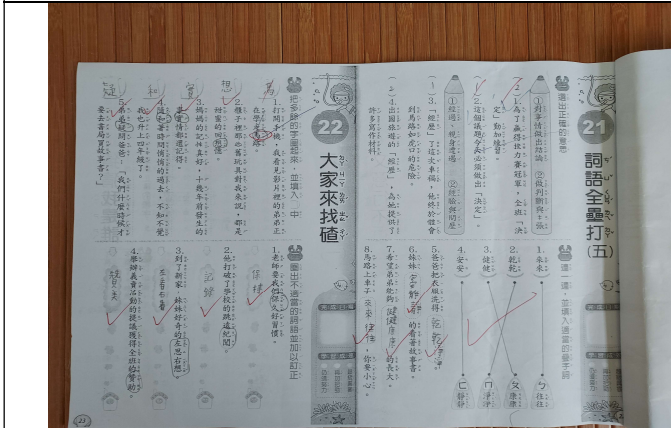 21
詞語全壘打(五)
選出正確的意思
①對事情做出結論 ②做判斷與主張
1.為了贏得拔力賽冠軍,全班「決
定」動加練習。
2.這個議題今天必須做出「決定」。
①經過、親身遭遇 ②經驗與閱歷
3.「經歷」了這次車禍,他終於體會
到馬路如虎口的危險。
4.出國旅遊的「經歷」,為他提供了
許多寫作材料。
連一連,並填入適當的疊字詞
1.來來
2.乾乾
3.健健
4.安安
ㄅ往往
ㄆ康康
ㄇ淨淨
ㄈ靜靜
5.爸爸把衣服洗得乾乾淨淨。
6.妹妹安安靜靜的看著故事書。
7.希望弟弟能夠健健康康的長大。
8.馬路上車子來來往往,你要小心。
22
大家來找碴
ㄉㄚˋ ㄐㄧㄚ ㄌㄞˊ ㄓㄠˇ ㄔㄚˊ
把多餘的字圈起來,並填入○中
1.打開手機,我看見影片裡的弟弟正
在學走馬路。
馬
2.櫃子裡那些舊玩具對我來說,都是
相當的回想憶。
想
3.媽媽的記性真好,十幾年前發生的
事實情都還記得。
實
4.隨和著時間悄悄的過去,不知不覺
我也升上四年級了。
和
5.弟弟疑問爸爸:「我們什麼時候才
要去書局買故事書?」
疑
圈出不適當的詞語並加以訂正
1.老師要我們保久好習慣。
保持
2.他打破了學校的跳遠紀聞。
記錄
3.到了新家,妹妹好奇的左思右想。
4.舉辦義賣活動的提議獲得全班的贊助。
贊美
23